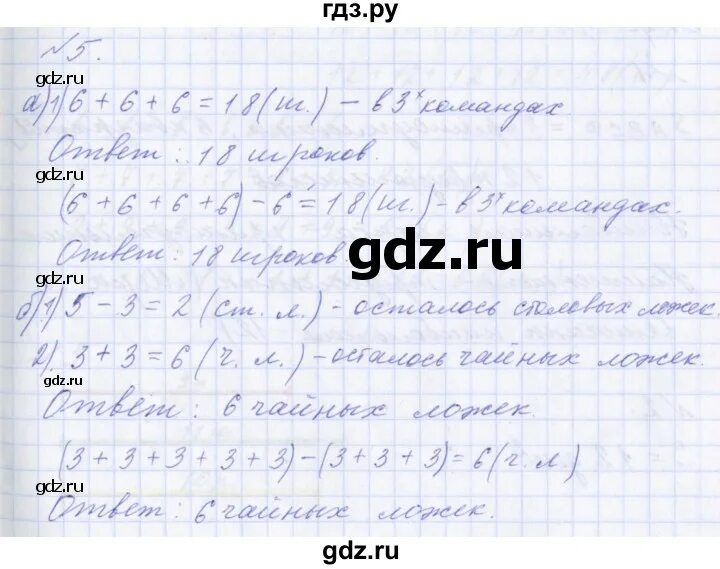 гдз.ру
№5.
gdz.ru
gdz.ru
а) 1) 6 + 6 + 6 = 18 (иг.) – в 3х командах
Ответ: 18 игроков.
gdz.ru
gdz.ru
(6 + 6 + 6 + 6) – 6 = 18 (иг.) – в 3х командах.
gdz.ru
Ответ: 18 игроков.
gdz.ru
gdz.ru
б) 1) 5 – 3 = 2 (ст. л.) – осталось столовых ложек.
2). 3 + 3 = 6 (ч. л.) – осталось чайных ложек.
gdz.ru
gdz.ru
Ответ: 6 чайных ложек.
(3 + 3 + 3 + 3 + 3) – (3 + 3 + 3) = 6 (ч. л.)
gdz.ru
gdz.ru
Ответ: 6 чайных ложек.
gdz.ru